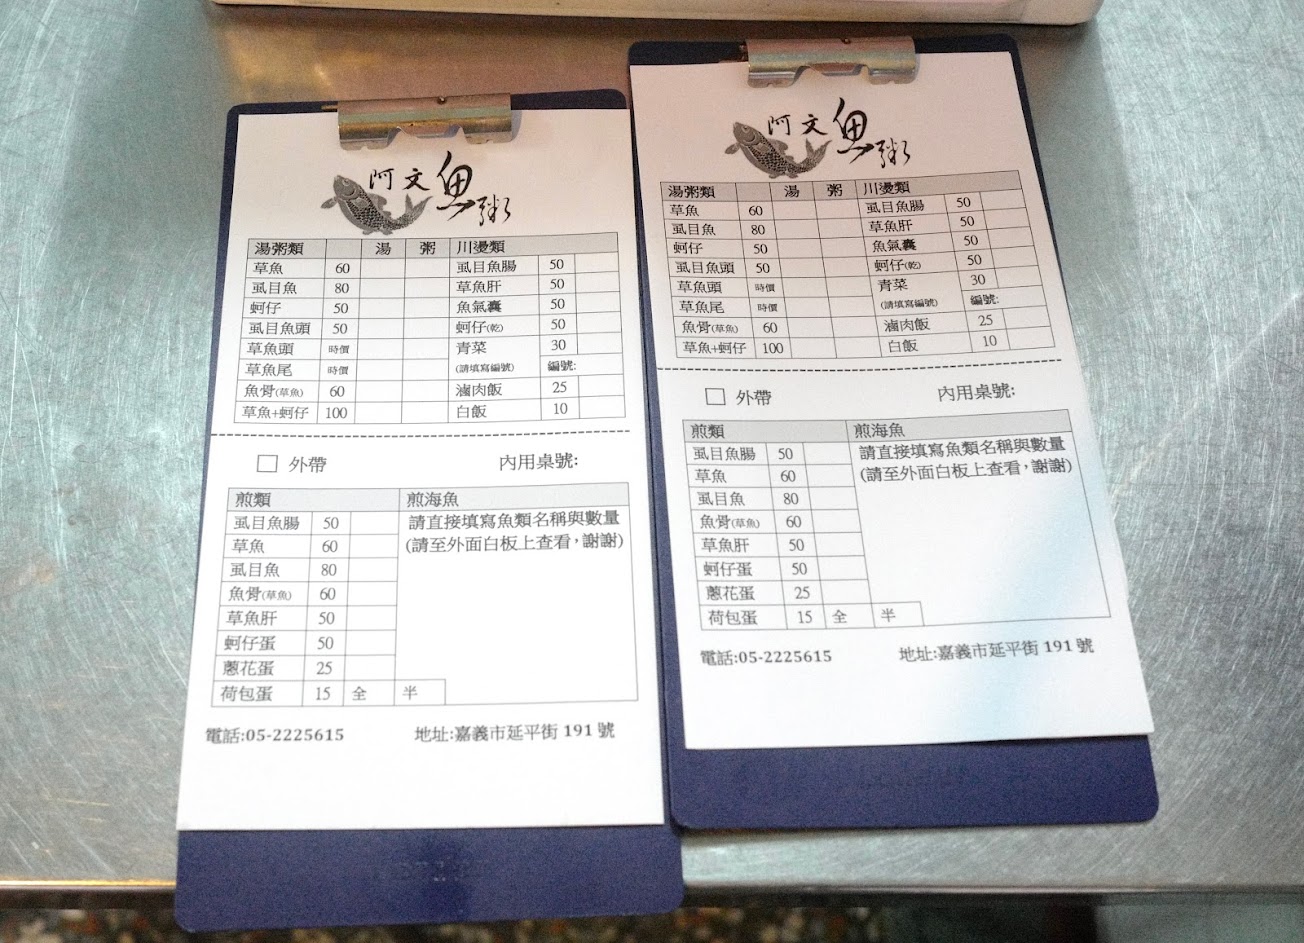 阿文魚粥
湯粥類 湯 粥 川燙類
草魚 60 虱目魚腸 50
虱目魚 80 草魚肝 50
蚵仔 50 魚氣囊 50
虱目魚頭 50 蚵仔(乾) 50
草魚頭 時價 青菜 30
草魚尾 時價 (請填寫編號) 編號:
魚骨(草魚) 60 滷肉飯 25
草魚+蚵仔 100 白飯 10
外帶 內用桌號:
煎類 煎海魚
虱目魚腸 50 請直接填寫魚類名稱與數量
草魚 60 (請至外面白板上查看,謝謝)
虱目魚 80
魚骨(草魚) 60
草魚肝 50
蚵仔蛋 50
蔥花蛋 25
荷包蛋 15 全 半
電話:05-2225615 地址:嘉義市延平街 191 號
阿文魚粥
湯粥類 湯 粥 川燙類
草魚 60 虱目魚腸 50
虱目魚 80 草魚肝 50
蚵仔 50 魚氣囊 50
虱目魚頭 50 蚵仔(乾) 50
草魚頭 時價 青菜 30
草魚尾 時價 (請填寫編號) 編號:
魚骨(草魚) 60 滷肉飯 25
草魚+蚵仔 100 白飯 10
外帶 內用桌號:
煎類 煎海魚
虱目魚腸 50 請直接填寫魚類名稱與數量
草魚 60 (請至外面白板上查看,謝謝)
虱目魚 80
魚骨(草魚) 60
草魚肝 50
蚵仔蛋 50
蔥花蛋 25
荷包蛋 15 全 半
電話:05-2225615 地址:嘉義市延平街 191 號